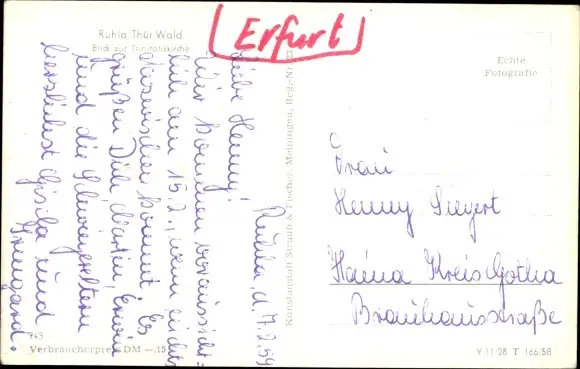 Erfurt
Ruhla/Thür Wald
Blick zur Trinitatiskirche
Echte
Fotografie
Ruhla, d. 7.2.59
Liebe Henny!
Wir kommen voraussicht=
lich am 15.2., wenn nichts
dazwischen kommt. Es
grüßen Dich, Martin, Erwin
und die Schwiegereltern
herzlichst Gisela und
Irmgard.
Kunstanstalt Straub & Fischer, Meiningen, Reg.-Nr.
Frau
Henny Siegert
Haina Kreis Gotha
Brauhausstraße
743
Verbraucherpreis DM —,15
V 11 28 T 166/58